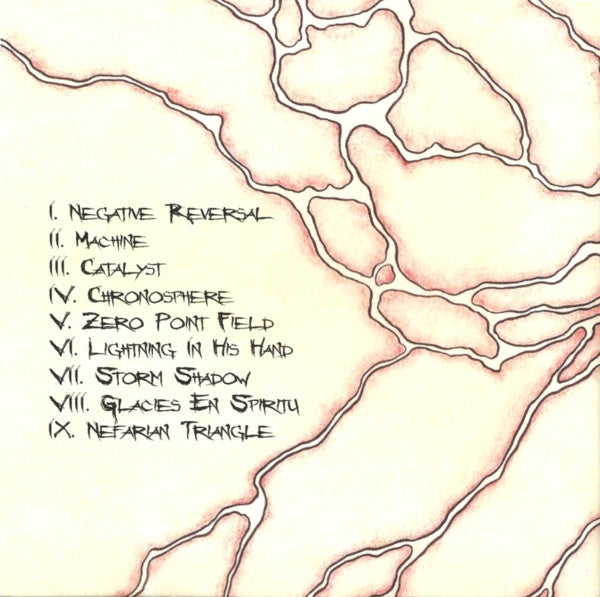 I. Negative Reversal
II. Machine
III. Catalyst
IV. Chronosphere
V. Zero Point Field
VI. Lightning In His Hand
VII. Storm Shadow
VIII. Glacies En Spiritu
IX. Nefarian Triangle